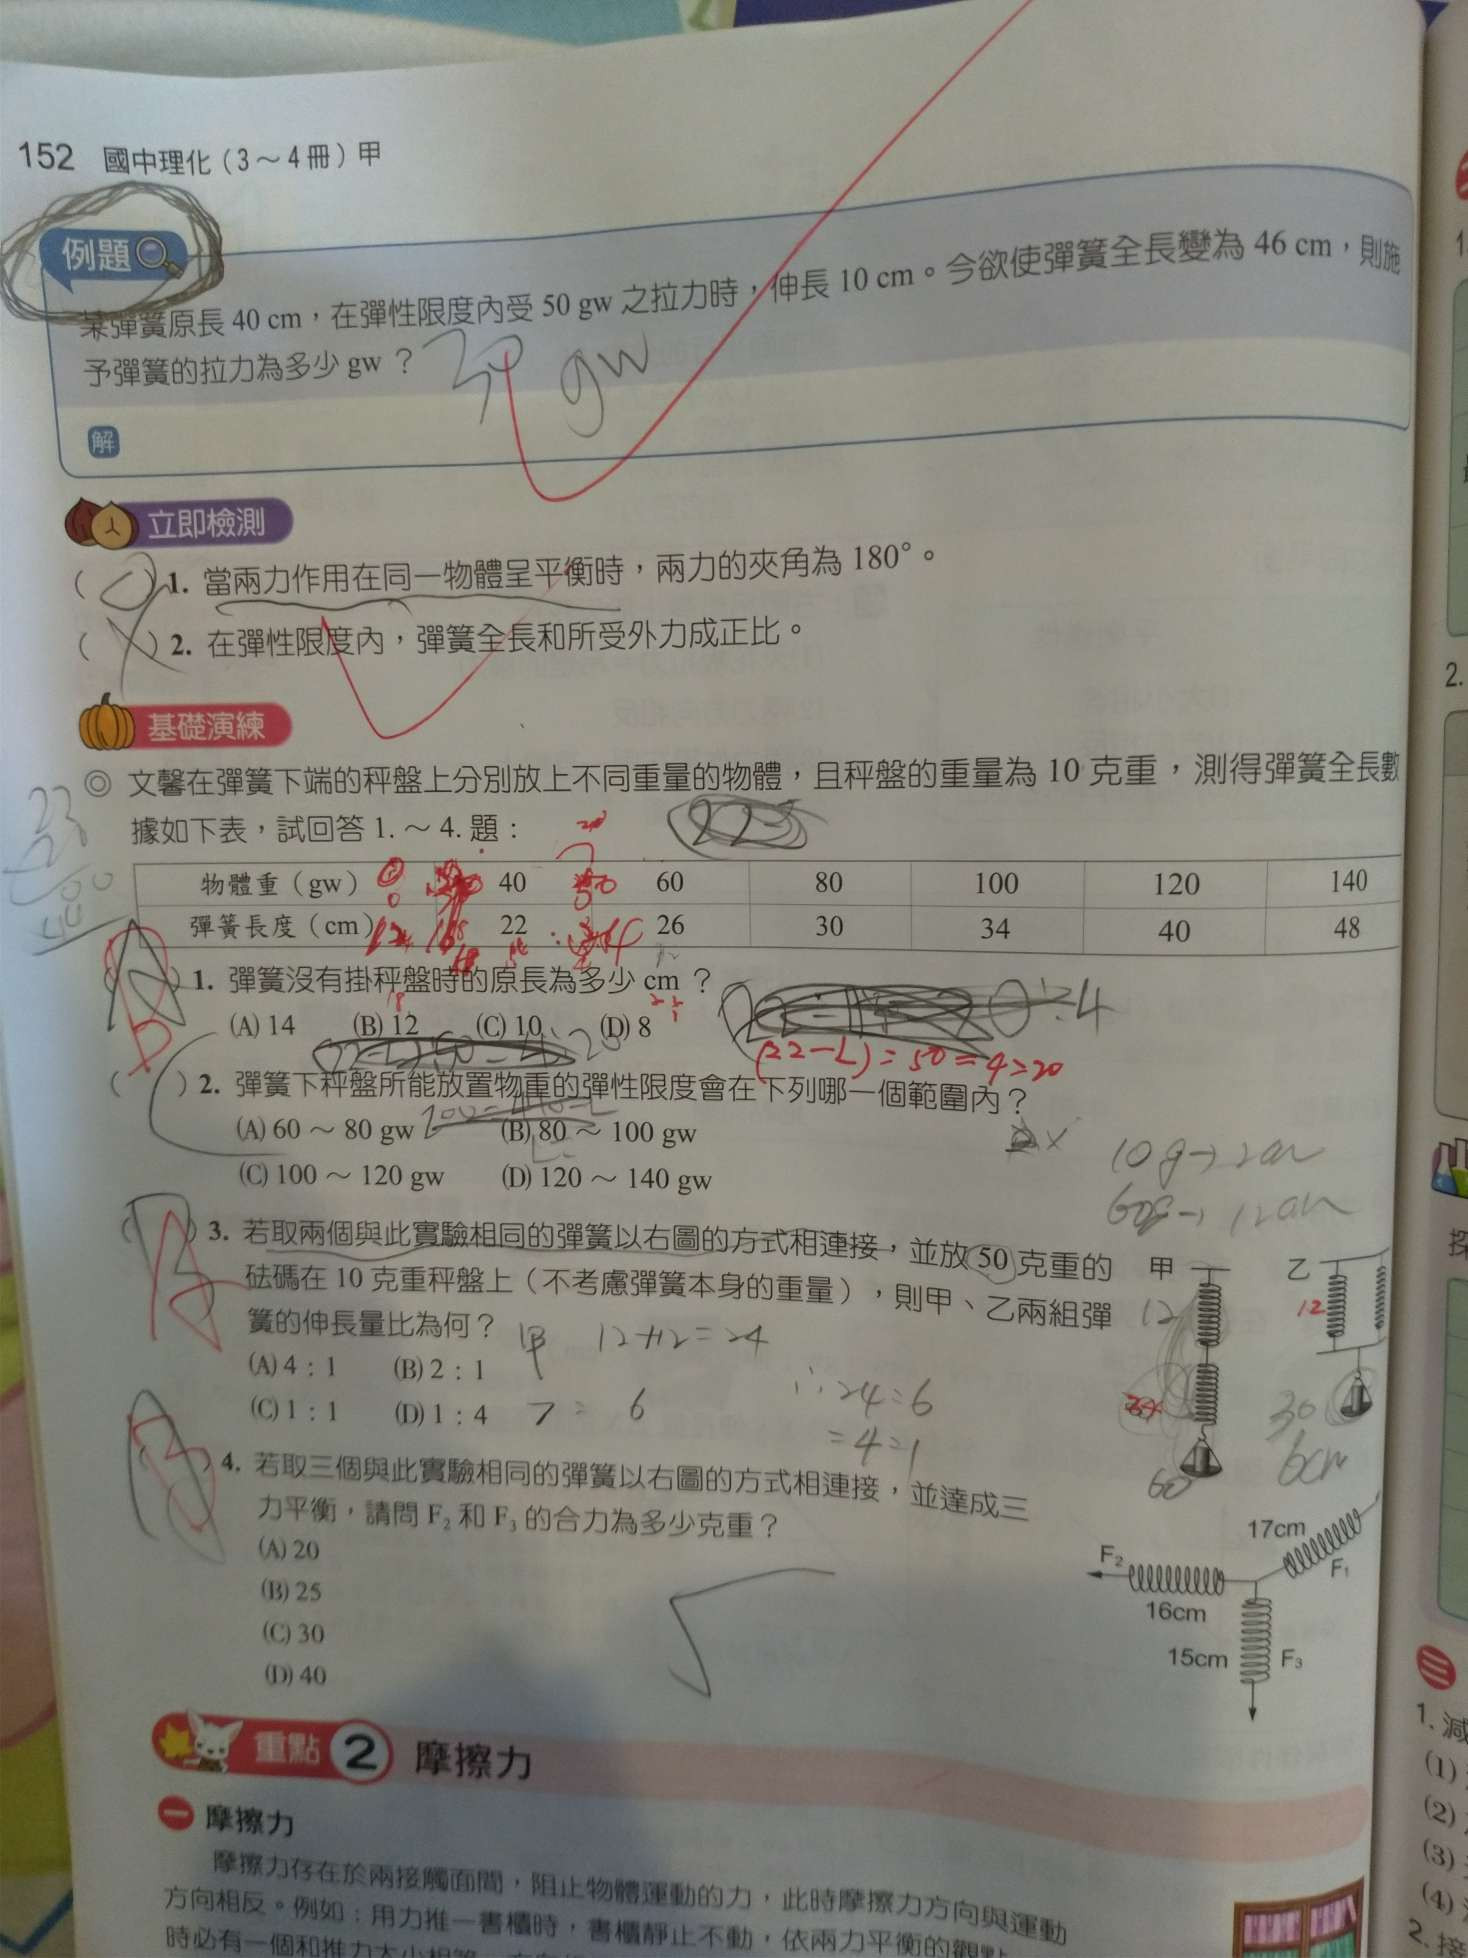 152 國中理化（3～4冊）甲
例題
某彈簧原長 40 cm，在彈性限度內受 50 gw 之拉力時，伸長 10 cm。今欲使彈簧全長變為 46 cm，則施
予彈簧的拉力為多少 gw？ 30 gw
解
立即檢測
(○)1. 當兩力作用在同一物體呈平衡時，兩力的夾角為 180°。
(╳)2. 在彈性限度內，彈簧全長和所受外力成正比。
基礎演練
◎ 文馨在彈簧下端的秤盤上分別放上不同重量的物體，且秤盤的重量為 10 克重，測得彈簧全長數
據如下表，試回答 1.～4. 題：
物體重（gw） 40 60 80 100 120 140
彈簧長度（cm） 22 26 30 34 40 48
1. 彈簧沒有掛秤盤時的原長為多少 cm？
(A) 14 (B) 12 (C) 10 (D) 8
(22-L)=50=4=20
( )2. 彈簧下秤盤所能放置物重的彈性限度會在下列哪一個範圍內？
(A) 60～80 gw (B) 80～100 gw
(C) 100～120 gw (D) 120～140 gw
3. 若取兩個與此實驗相同的彈簧以右圖的方式相連接，並放 50 克重的
砝碼在 10 克重秤盤上（不考慮彈簧本身的重量），則甲、乙兩組彈
簧的伸長量比為何？ 甲 12+12=24
(A) 4：1 (B) 2：1
(C) 1：1 (D) 1：4
6
∴24=6
=4=1
甲
乙
12
12
60
30
6cm
4. 若取三個與此實驗相同的彈簧以右圖的方式相連接，並達成三
力平衡，請問 F₂ 和 F₃ 的合力為多少克重？
(A) 20
(B) 25
(C) 30
(D) 40
17cm
F₁
F₂
16cm
15cm
F₃
重點 2 摩擦力
一 摩擦力
摩擦力存在於兩接觸面間，阻止物體運動的力，此時摩擦力方向與運動
方向相反。例如：用力推一書櫃時，書櫃靜止不動，依兩力平衡的觀點
時必有一個和推力大小相等
2.
三
1. 減
(1)
(2)
(3)
(4)
2. 接